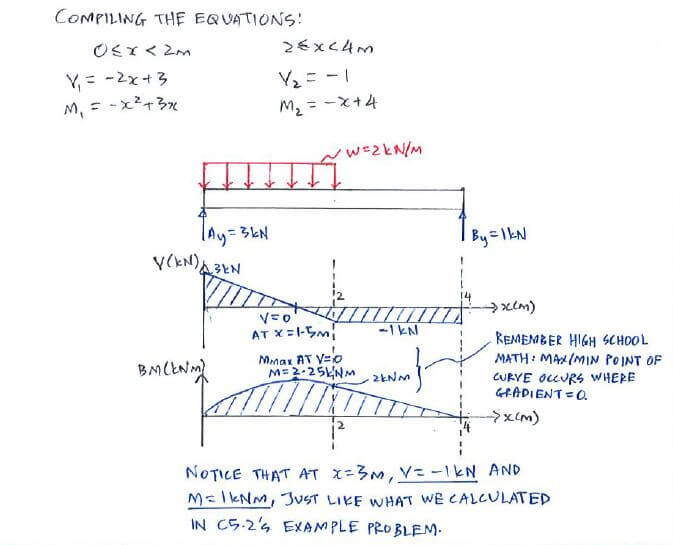 COMPILING THE EQUATIONS:
0≤x<2m    2≤x<4m
V₁ = -2x+3    V₂ = -1
M₁ = -x²+3x    M₂ = -x+4
W=2kN/M
Ay=3kN
By=1kN
V(kN)
3kN
2
4
x(m)
V=0
AT x=1.5m
-1kN
REMEMBER HIGH SCHOOL
MATH: MAX/MIN POINT OF
CURVE OCCURS WHERE
GRADIENT=0.
BM(kNm)
Mmax AT V=0
M=2.25kNm
2kNm
2
4
x(m)
NOTICE THAT AT x=3m, V=-1kN AND
M=1kNm, JUST LIKE WHAT WE CALCULATED
IN C5.2's EXAMPLE PROBLEM.